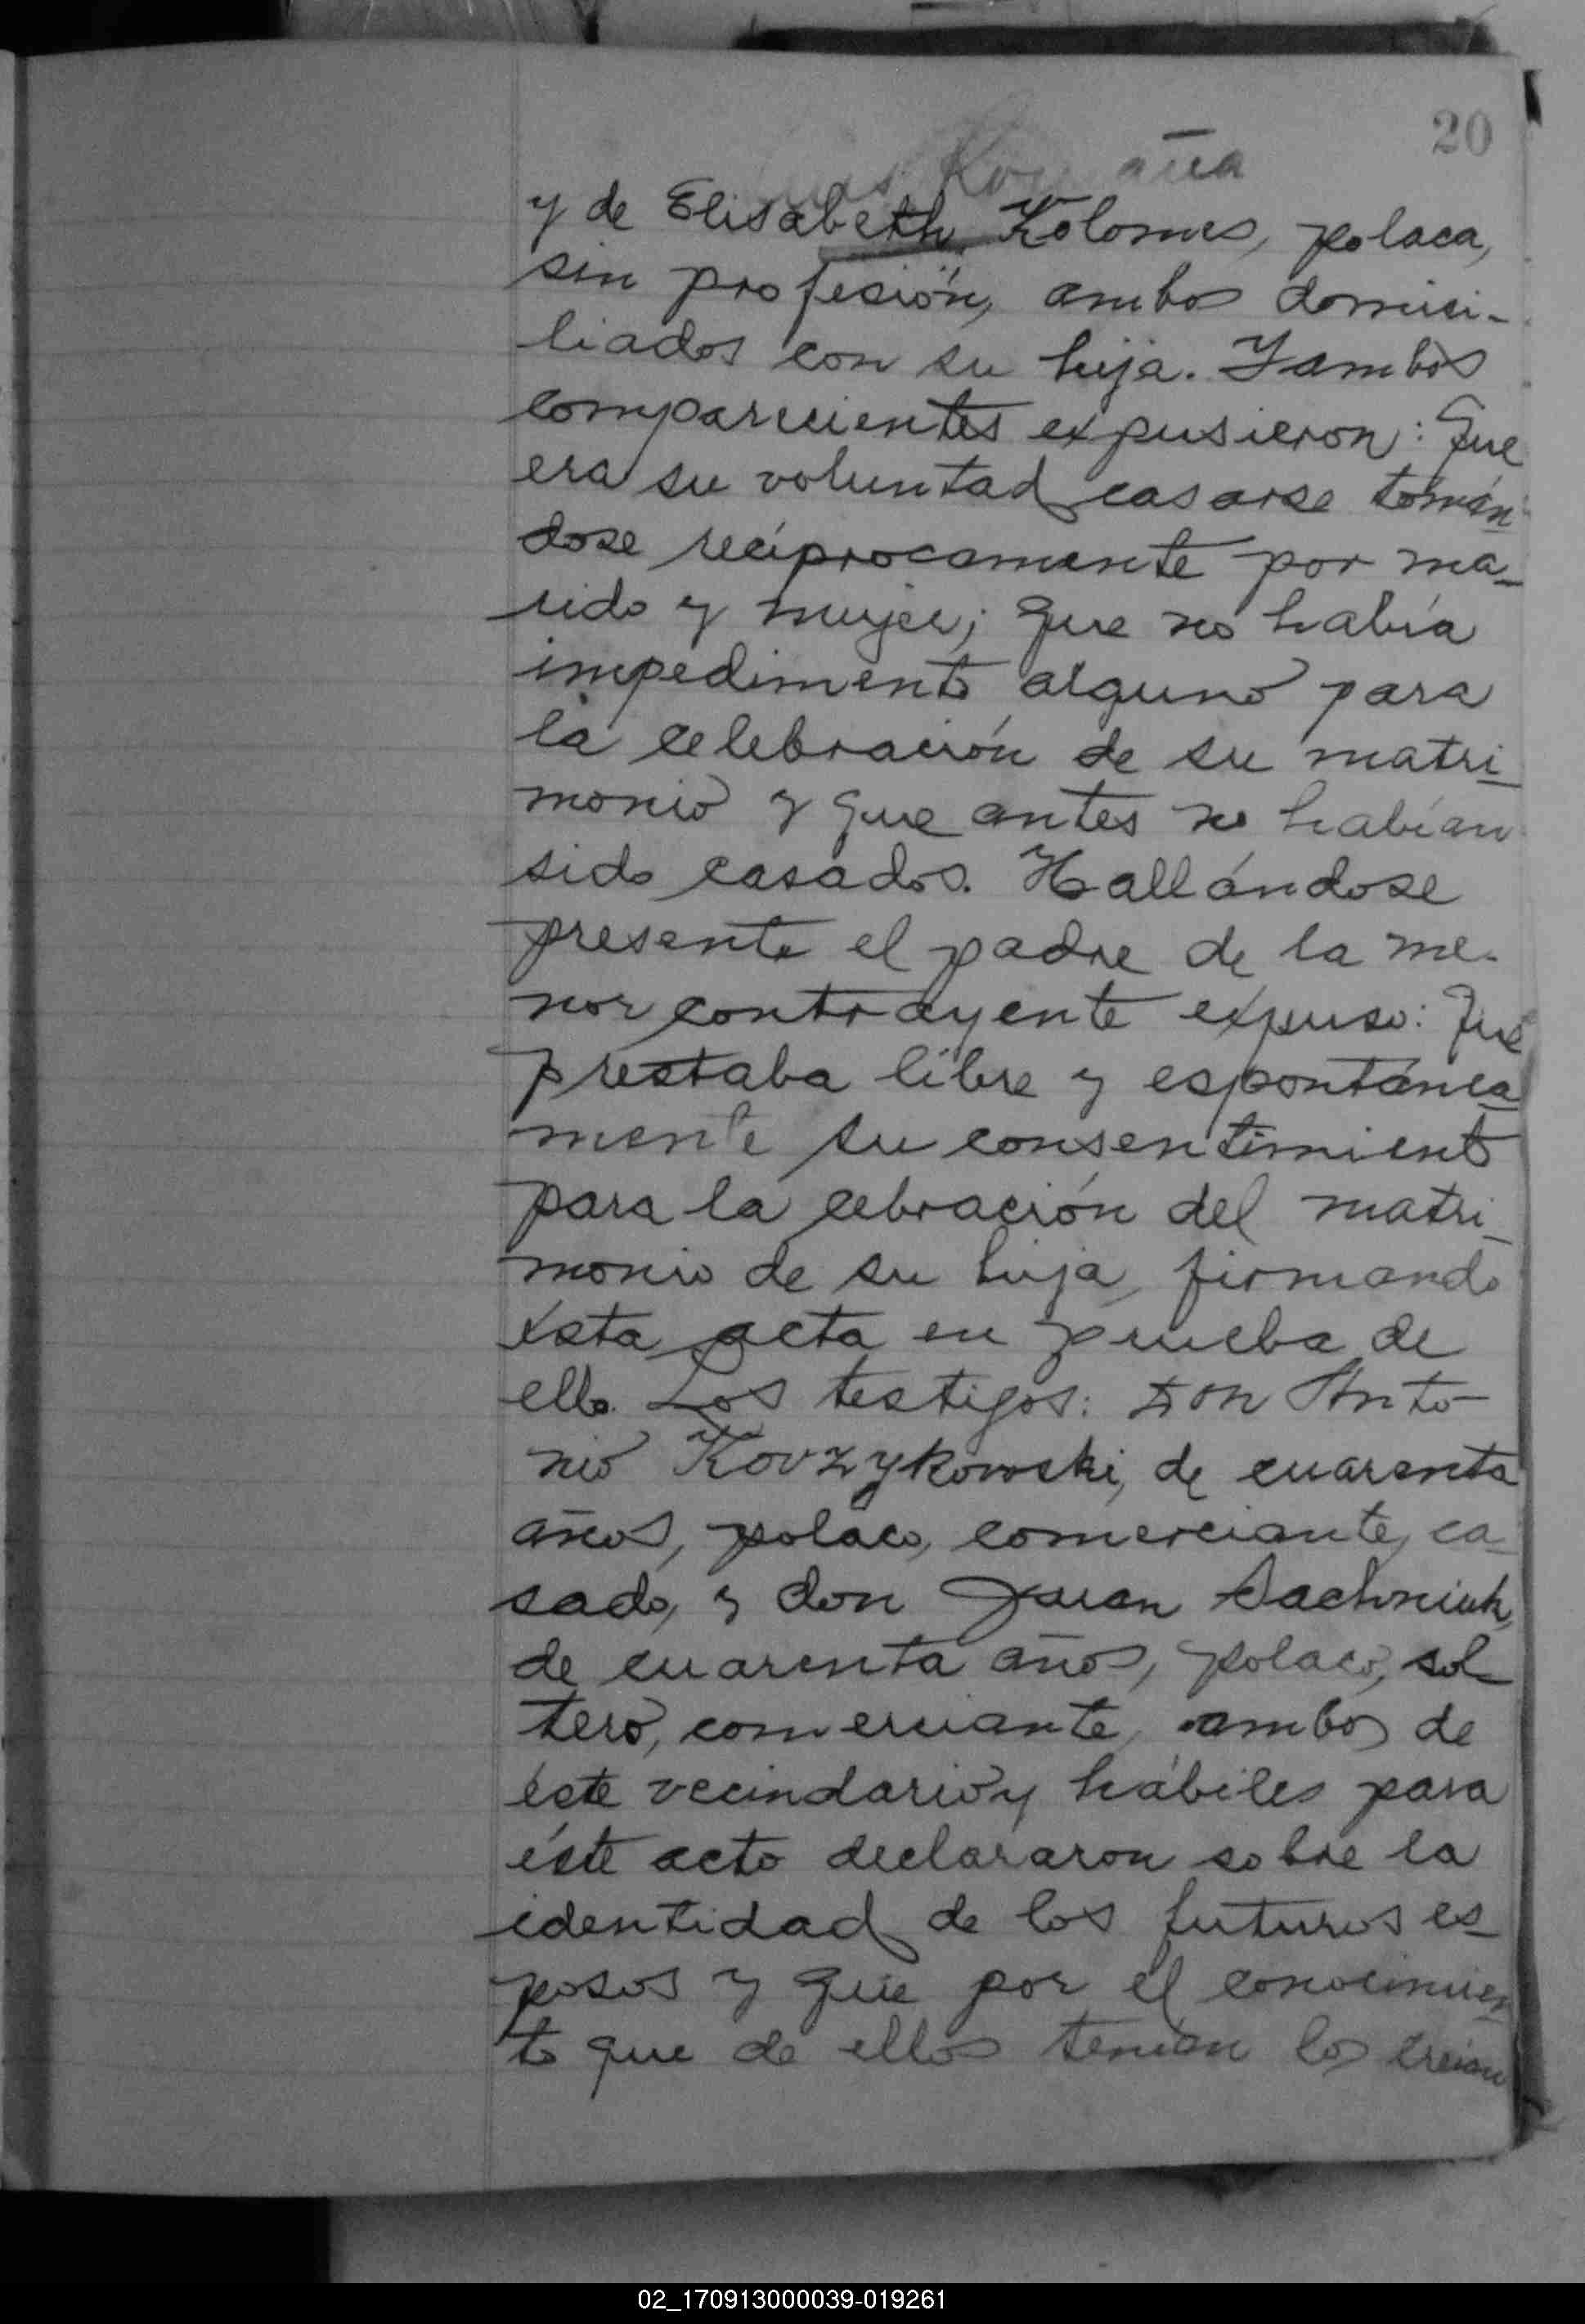 20
y de Elisabeth Kolomes, polaca,
sin profesión, ambos domici-
liados con su hija. Y ambos
comparecientes expusieron: Que
era su voluntad casarse tomán
dose recíprocamente por ma-
rido y mujer; que no había
impedimento alguno para
la celebración de su matri-
monio y que antes no habían
sido casados. Hallándose
presente el padre de la me-
nor contrayente expuso: Que
prestaba libre y espontánea-
mente su consentimiento
para la cebración del matri-
monio de su hija, firmando
ésta acta en prueba de
ello. Los testigos: Don Anto-
nio Kovzykowski, de cuarenta
años, polaco, comerciante, ca-
sado, y don Juan
de cuarenta años, polaco, sol-
tero, comerciante, ambos de
éste vecindario y hábiles para
éste acto declararon sobre la
identidad de los futuros es-
posos y que por el conocimien
to que de ellos tenían los creian
02_170913000039-019261